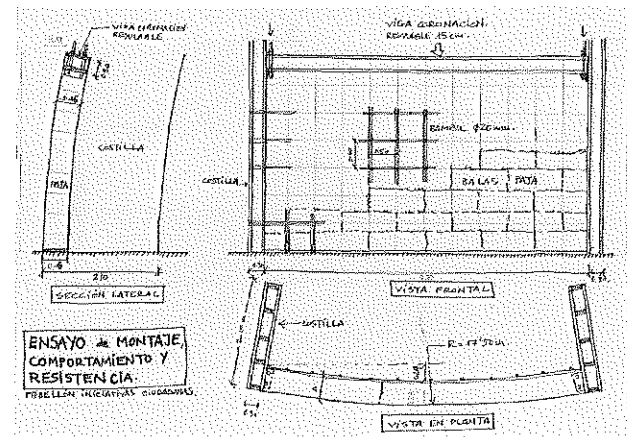 VIGA CORONACIÓN
REGULABLE
COSTILLA
PAJA
210
SECCIÓN LATERAL
VIGA CORONACIÓN.
REGULABLE 15 cm.
BAMBÚ
BALAS PAJA
COSTILLA
VISTA FRONTAL
COSTILLA
VISTA EN PLANTA
ENSAYO de MONTAJE,
COMPORTAMIENTO Y
RESISTENCIA.
PABELLÓN INICIATIVAS CIUDADANAS.